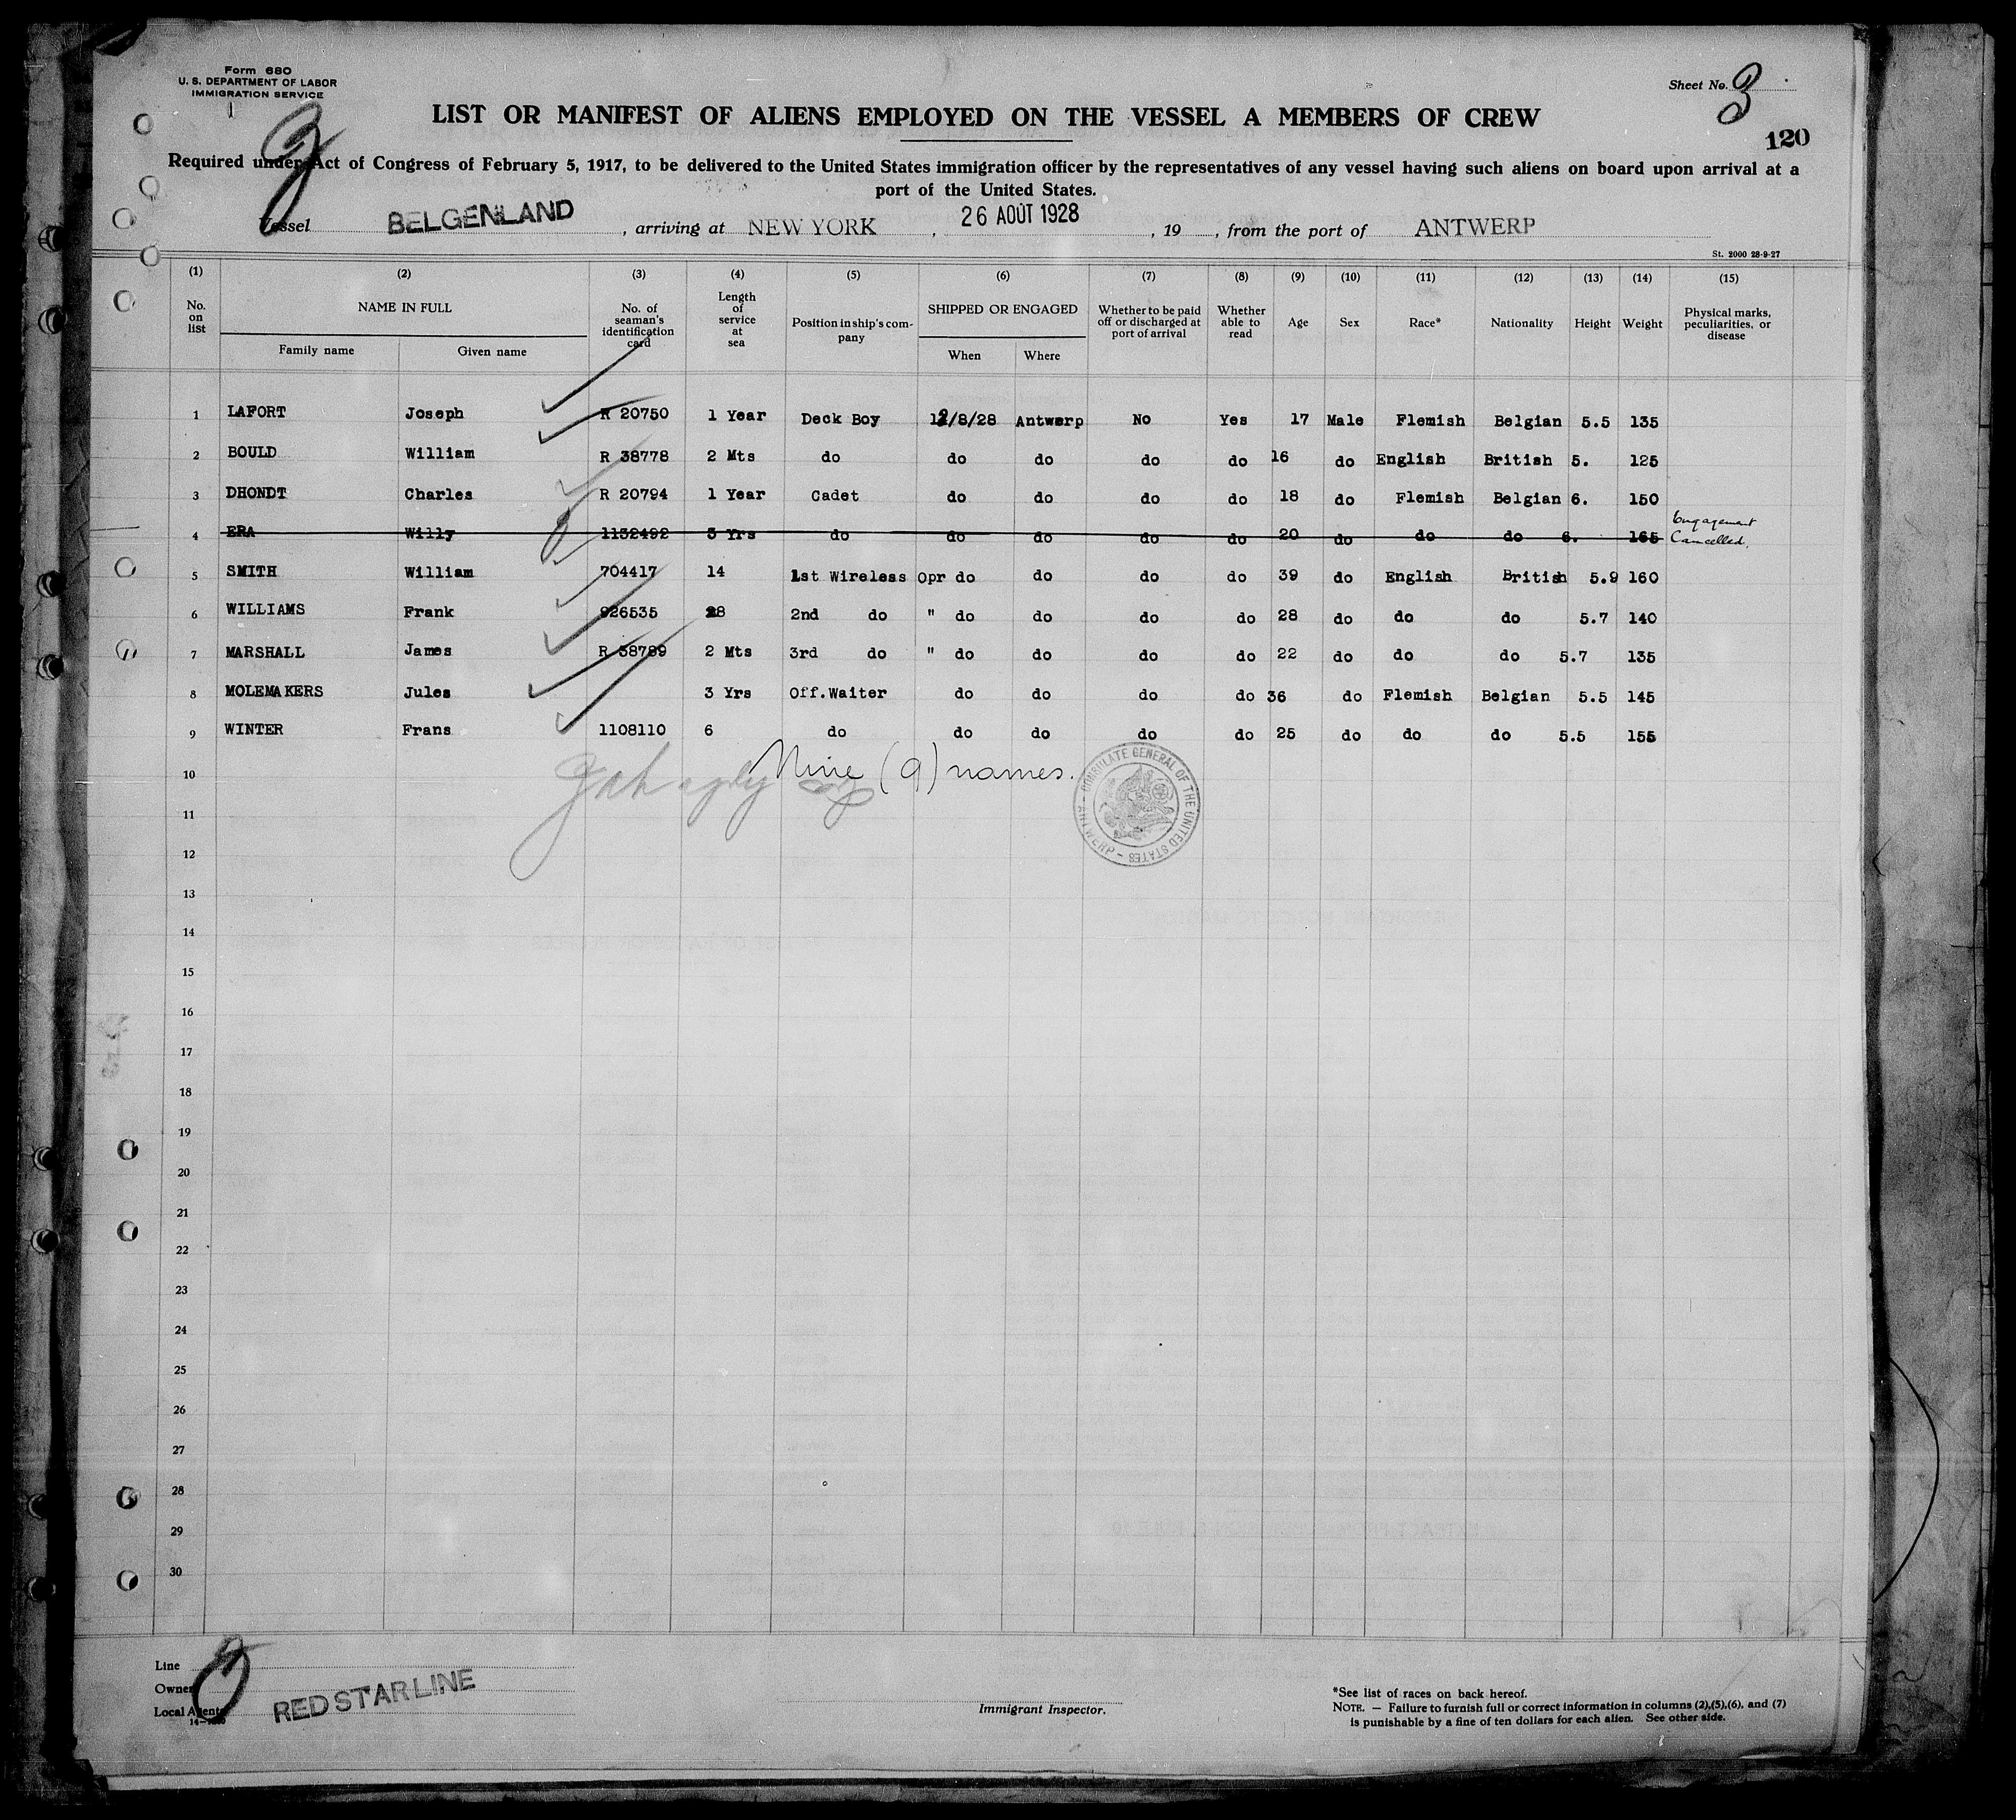 Form 680
U. S. DEPARTMENT OF LABOR
IMMIGRATION SERVICE
Sheet No. 3
LIST OR MANIFEST OF ALIENS EMPLOYED ON THE VESSEL A MEMBERS OF CREW
120
Required under Act of Congress of February 5, 1917, to be delivered to the United States immigration officer by the representatives of any vessel having such aliens on board upon arrival at a
port of the United States.
Vessel BELGENLAND , arriving at NEW YORK , 26 AOÛT 1928 , 19 , from the port of ANTWERP
St. 2000 28-9-27
(1) (2) (3) (4) (5) (6) (7) (8) (9) (10) (11) (12) (13) (14) (15)
No. on list NAME IN FULL Family name Given name No. of seaman's identification card Length of service at sea Position in ship's company SHIPPED OR ENGAGED When Where Whether to be paid off or discharged at port of arrival Whether able to read Age Sex Race* Nationality Height Weight Physical marks, peculiarities, or disease
1 LAFORT Joseph R 20750 1 Year Deck Boy 12/8/28 Antwerp No Yes 17 Male Flemish Belgian 5.5 135
2 BOULD William R 38778 2 Mts do do do do do 16 do English British 5. 125
3 DHONDT Charles R 20794 1 Year Cadet do do do do 18 do Flemish Belgian 6. 150
4 ERA Willy 1132492 3 Yrs do do do do do 20 do do do 6. 165 Engagement Cancelled.
5 SMITH William 704417 14 1st Wireless Opr do do do do 39 do English British 5.9 160
6 WILLIAMS Frank 926535 8 2nd do " do do do do 28 do do do 5.7 140
7 MARSHALL James R 38789 2 Mts 3rd do " do do do do 22 do do do 5.7 135
8 MOLEMAKERS Jules 3 Yrs Off.Waiter do do do do 36 do Flemish Belgian 5.5 145
9 WINTER Frans 1108110 6 do do do do do 25 do do do 5.5 155
10 Nine (9) names.
CONSULATE GENERAL OF THE UNITED STATES - ANTWERP -
11
12
13
14
15
16
17
18
19
20
21
22
23
24
25
26
27
28
29
30
Line
Owner
Local Agents
RED STAR LINE
Immigrant Inspector.
*See list of races on back hereof.
NOTE. — Failure to furnish full or correct information in columns (2),(5),(6), and (7)
is punishable by a fine of ten dollars for each alien. See other side.